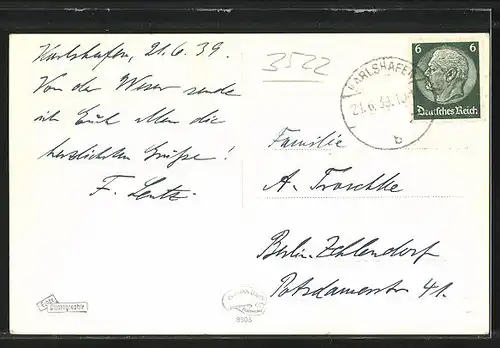 Karlshafen, 21.6.39.
Von der Weser sende
ich Euch allen die
herzlichsten Grüße!
F. Lentz
3522
KARLSHAFEN
21.6.39.10
b
6 6
Deutsches Reich
Familie
A. Troschke
Berlin-Zehlendorf
Potsdamerstr 41.
Echte
Photographie
8505